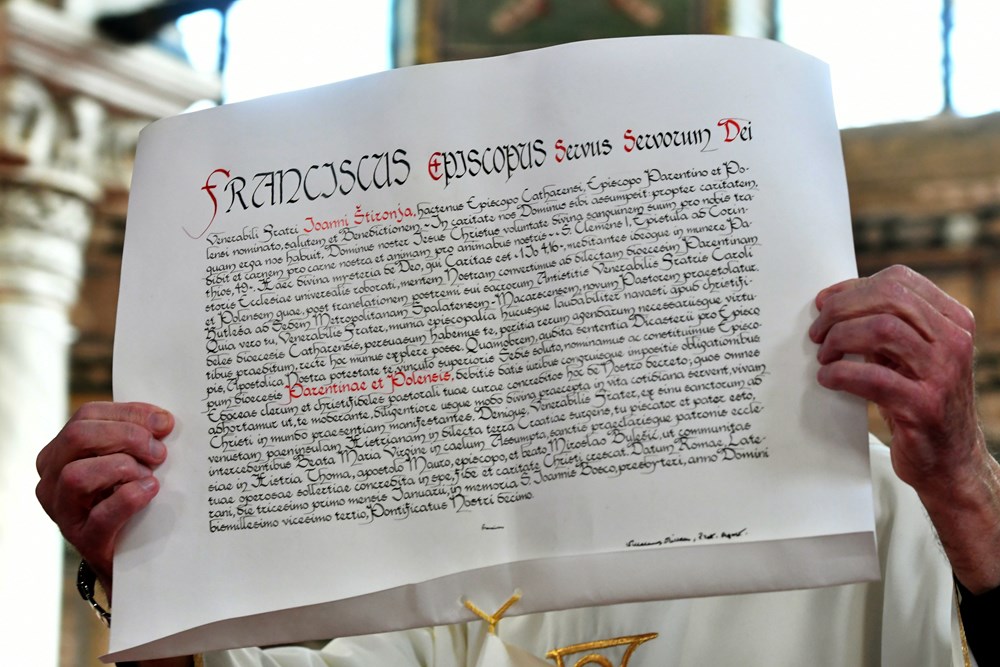 FRANCISCUS EPISCOPUS Servus Servorum Dei
Venerabili Fratri Ioanni Štironja, hactenus Episcopo Catharensi, Episcopo Parentino et Po-
lensi nominato, salutem et Benedictionem. «In caritate nos Dominus sibi assumpsit propter caritatem,
quam erga nos habuit, Dominus noster Jesus Christus voluntate divina sanguinem suum pro nobis tra-
didit et carnem pro carne nostra et animam pro animabus nostris» - S. Clemens I, Epistula ab Corin-
thios, 49-. Haec divina mysteria de Deo, qui Caritas est - 1 Jo 4,16 -, meditantes ideoque in munere Pa-
storis Ecclesiae universalis roborati, mentem Nostram convertimus ab dilectam dioecesim Parentinam
et Polensem quae, post translationem postremi sui sacrorum Antistitis Venerabilis Fratris Caroli
Kutleša ad Sedem Metropolitanam Spalatensem - Macarscensem, novum Pastorem praestolatur.
Quia vero tu, Venerabilis Frater, munia episcopalia hucusque laudabiliter navasti apud christifi-
deles dioecesis Catharensis, persuasum habemus te, peritia rerum agendarum necessariisque virtu-
tibus praeditum, recte hoc munus explere posse. Quamobrem, audita sententia Dicasterii pro Episco
pis, Apostolica Nostra potestate te vinculo superioris Sedis soluto, nominamus ac constituimus Episco
pum dioecesis Parentinae et Polensis, debitis datis iuribus congruisque impositis obligationibus
Edoceas clerum et christifideles pastorali tuae curae concreditos hoc de Nostro decreto; quos omnes
adhortamur ut, te moderante, diligentiore usque modo divina praecepta in vita cotidiana servent, vivam
Christi in mundo praesentiam manifestantes. Denique, Venerabilis Frater, ex sinu sanctorum ab
venustam paeninsulam Histrianam in dilecta terra Croatiae surgens, tu piscator et pater esto,
intercedentibus Beata Maria Virgine in caelum Assumpta, sanctis praeclarisque patronis eccle-
siae in Histria Thoma, apostolo Mauro, episcopo, et beato Miroslao Bulešić, ut communitas
tuae operosae sollertiae concredita in spe, fide et caritate Christi crescat. Datum Romae, Late-
rani, die tricesimo primo mensis Ianuarii, in memoria S. Ioannis Bosco, presbyteri, anno Domini
bismillesimo vicesimo tertio, Pontificatus Nostri decimo.